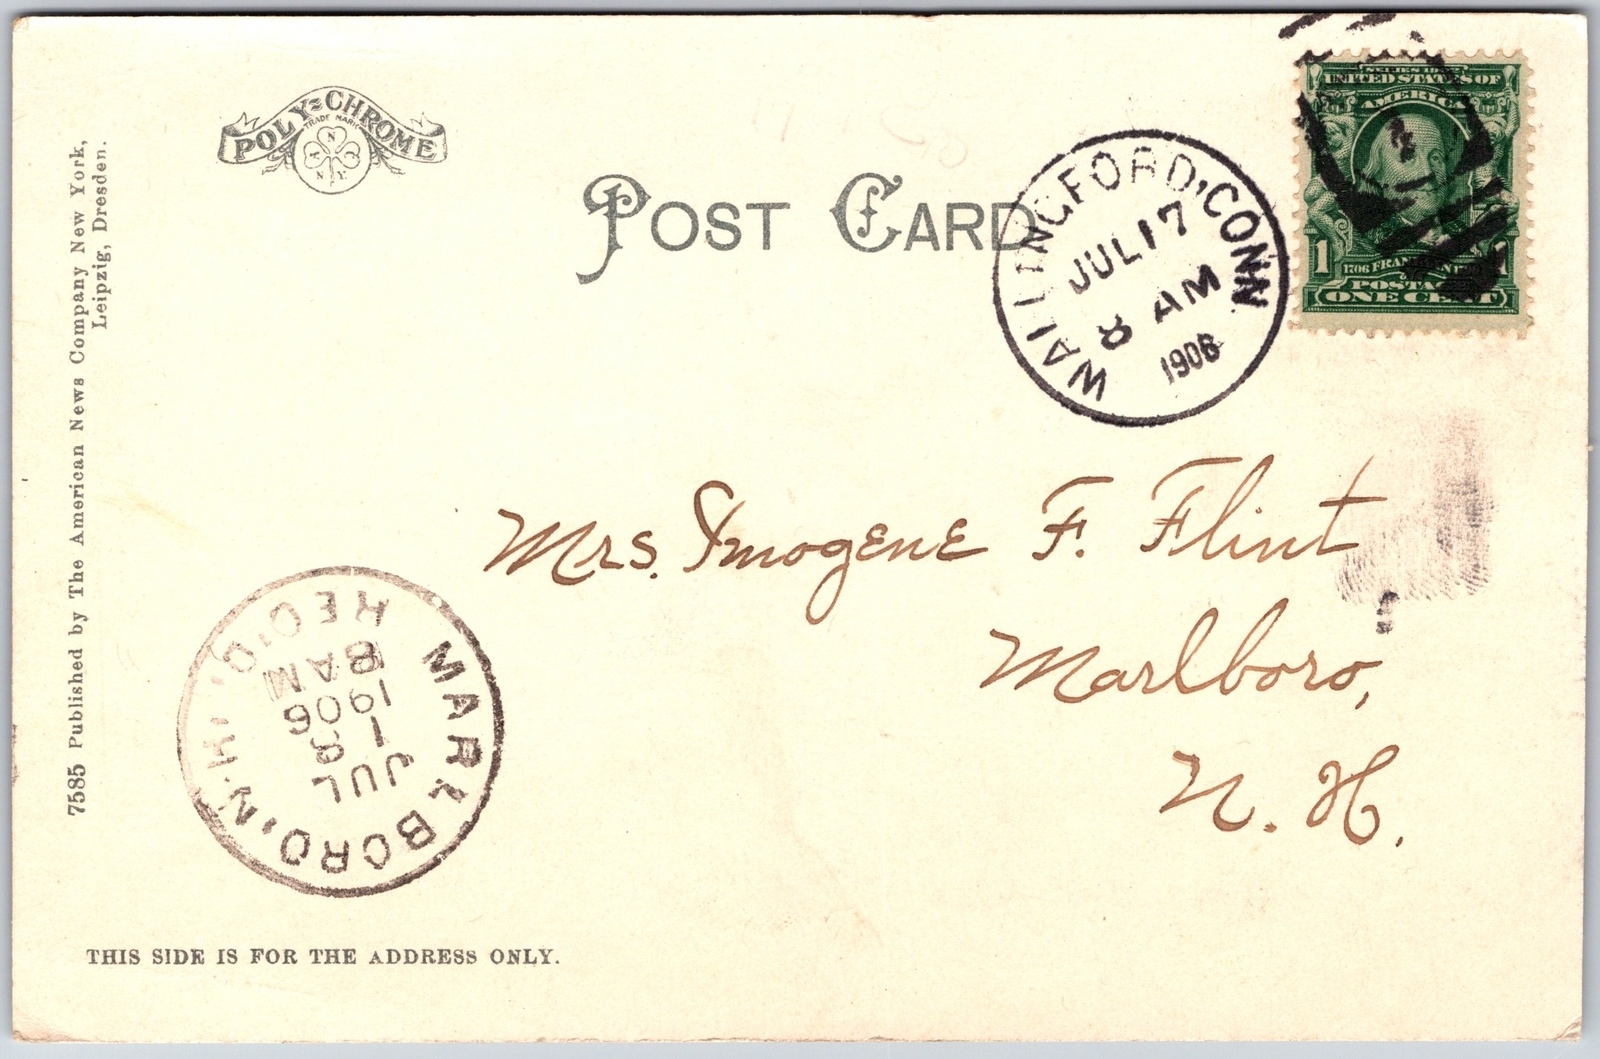 POLY-CHROME
TRADE MARK
7585 Published by The American News Company New York,
Leipzig, Dresden.
POST CARD
WALLINGFORD, CONN
JUL 17
8 AM
1906
UNITED STATES OF
AMERICA
1 1
1706 FRANKLIN 1790
POSTAGE
ONE CENT
Mrs. Imogene F. Flint
Marlboro,
N. H.
MARLBORO, N.H.
JUL
18
1906
8 AM
REC'D.
THIS SIDE IS FOR THE ADDRESS ONLY.